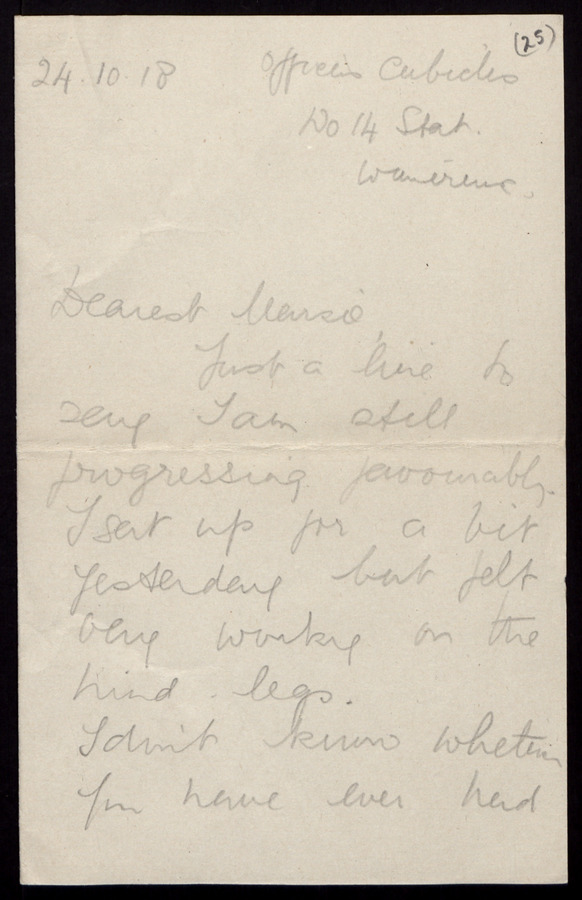 (25)
24.10.18 Officers Cubicles
No 14 Stat.
Wimereux.
Dearest
Just a line to
say I am still
progressing favourably.
I sat up for a bit
yesterday but felt
very wonky on the
hind-legs.
I don't know whether
you have ever had